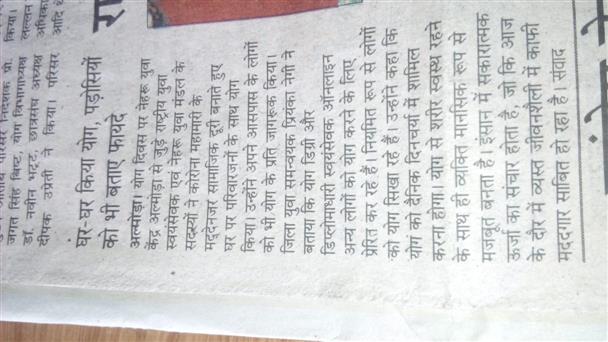 जगत सिंह बिष्ट, योग विभागाध्यक्ष
डॉ. नवीन भट्ट, छात्रसंघ अध्यक्ष
दीपक उप्रेती ने किया। परिसर
किया।
लल्लन
अधिका
आदि थे
रा
घर-घर किया योग, पड़ोसियों
को भी बताए फायदे
अल्मोड़ा। योग दिवस पर नेहरू युवा
केंद्र अल्मोड़ा से जुड़े राष्ट्रीय युवा
स्वयंसेवक एवं नेहरू युवा मंडल के
सदस्यों ने कोरोना महामारी के
मद्देनजर सामाजिक दूरी बनाते हुए
घर पर परिवारजनों के साथ योग
किया। उन्होंने अपने आसपास के लोगों
को भी योग के प्रति जागरूक किया।
जिला युवा समन्वयक प्रियंका नेगी ने
बताया कि योग डिग्री और
डिप्लोमाधारी स्वयंसेवक ऑनलाइन
अन्य लोगों को योग करने के लिए
प्रेरित कर रहे हैं। नियमित रूप से लोगों
को योग सिखा रहे हैं। उन्होंने कहा कि
योग को दैनिक दिनचर्या में शामिल
करना होगा। योग से शरीर स्वस्थ रहने
के साथ ही व्यक्ति मानसिक रूप से
मजबूत बनता है। इंसान में सकारात्मक
ऊर्जा का संचार होता है, जो कि आज
के दौर में व्यस्त जीवनशैली में काफी
मददगार साबित हो रहा है। संवाद